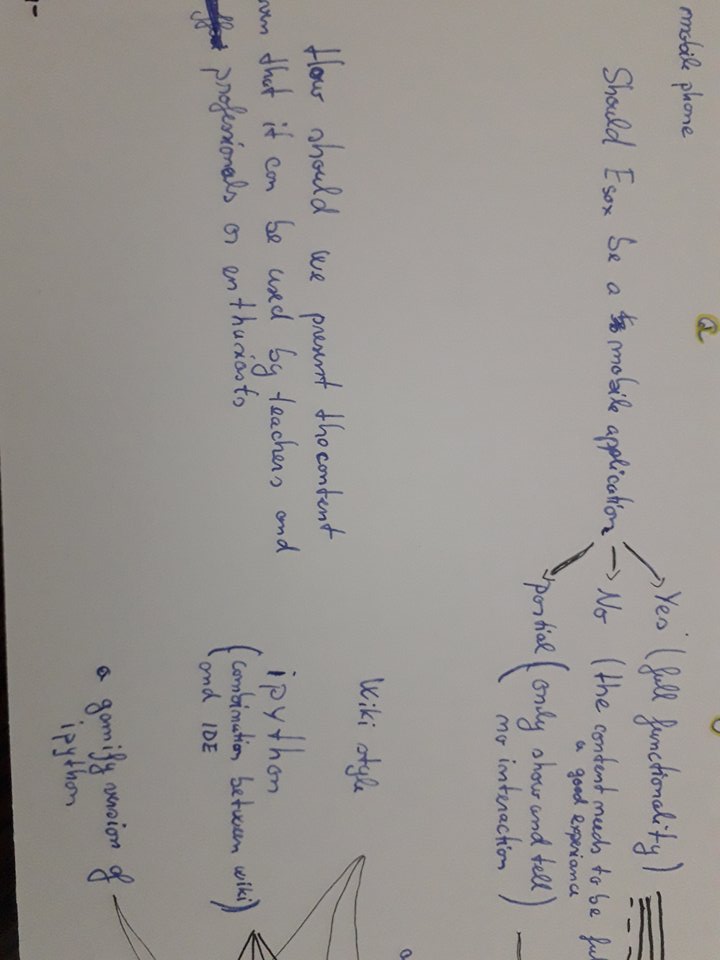 mobile phone
Q
Should Esox be a mobile application
Yes (full functionality)
No (the content needs to be
a good experience
partial (only show and tell)
no interaction)
How should we present the content
that it can be used by teachers and
professionals or enthusiasts
Wiki style
ipython
(combination between wiki)
and IDE
a gamify version of
ipython